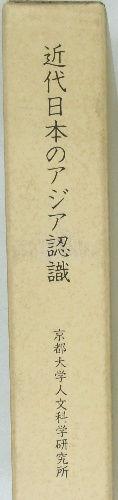 近代日本のアジア認識
京都大学人文科学研究所